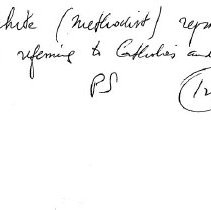 hite (Methodist) rep
referring to Catholics and
PS